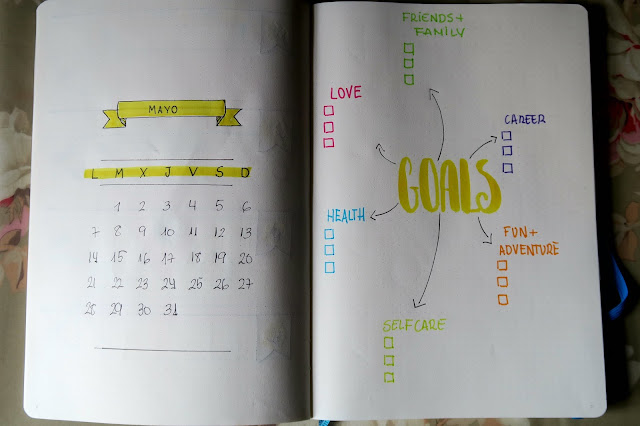 MAYO
L M X J V S D
1 2 3 4 5 6
7 8 9 10 11 12 13
14 15 16 17 18 19 20
21 22 23 24 25 26 27
28 29 30 31
FRIENDS +
FAMILY
LOVE
CAREER
GOALS
HEALTH
FUN +
ADVENTURE
SELFCARE